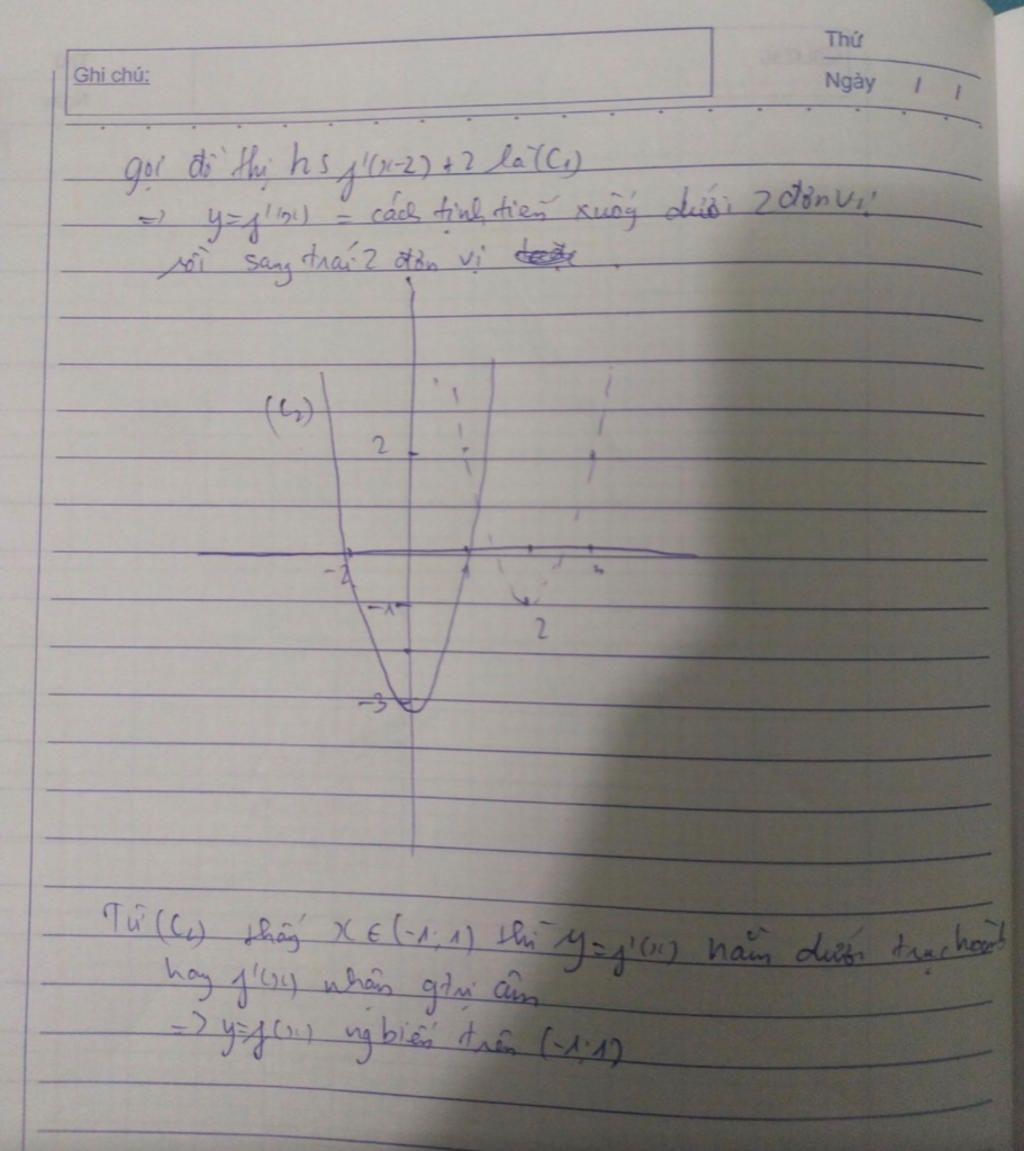 Thứ
Ghi chú:
Ngày / /
gọi đồ thị hs f'(x-2)+2 là (C₁)
=> y=f'(x) = cách tịnh tiến xuống dưới 2 đơn vị
rồi sang trái 2 đơn vị
(C₂)
2
-2
-1
2
-3
Từ (C₂) thấy x ∈ (-1; 1) thì y=f'(x) nằm dưới trục hoành
hay f'(x) nhận gtrị âm
=> y=f(x) ngbiến trên (-1; 1)